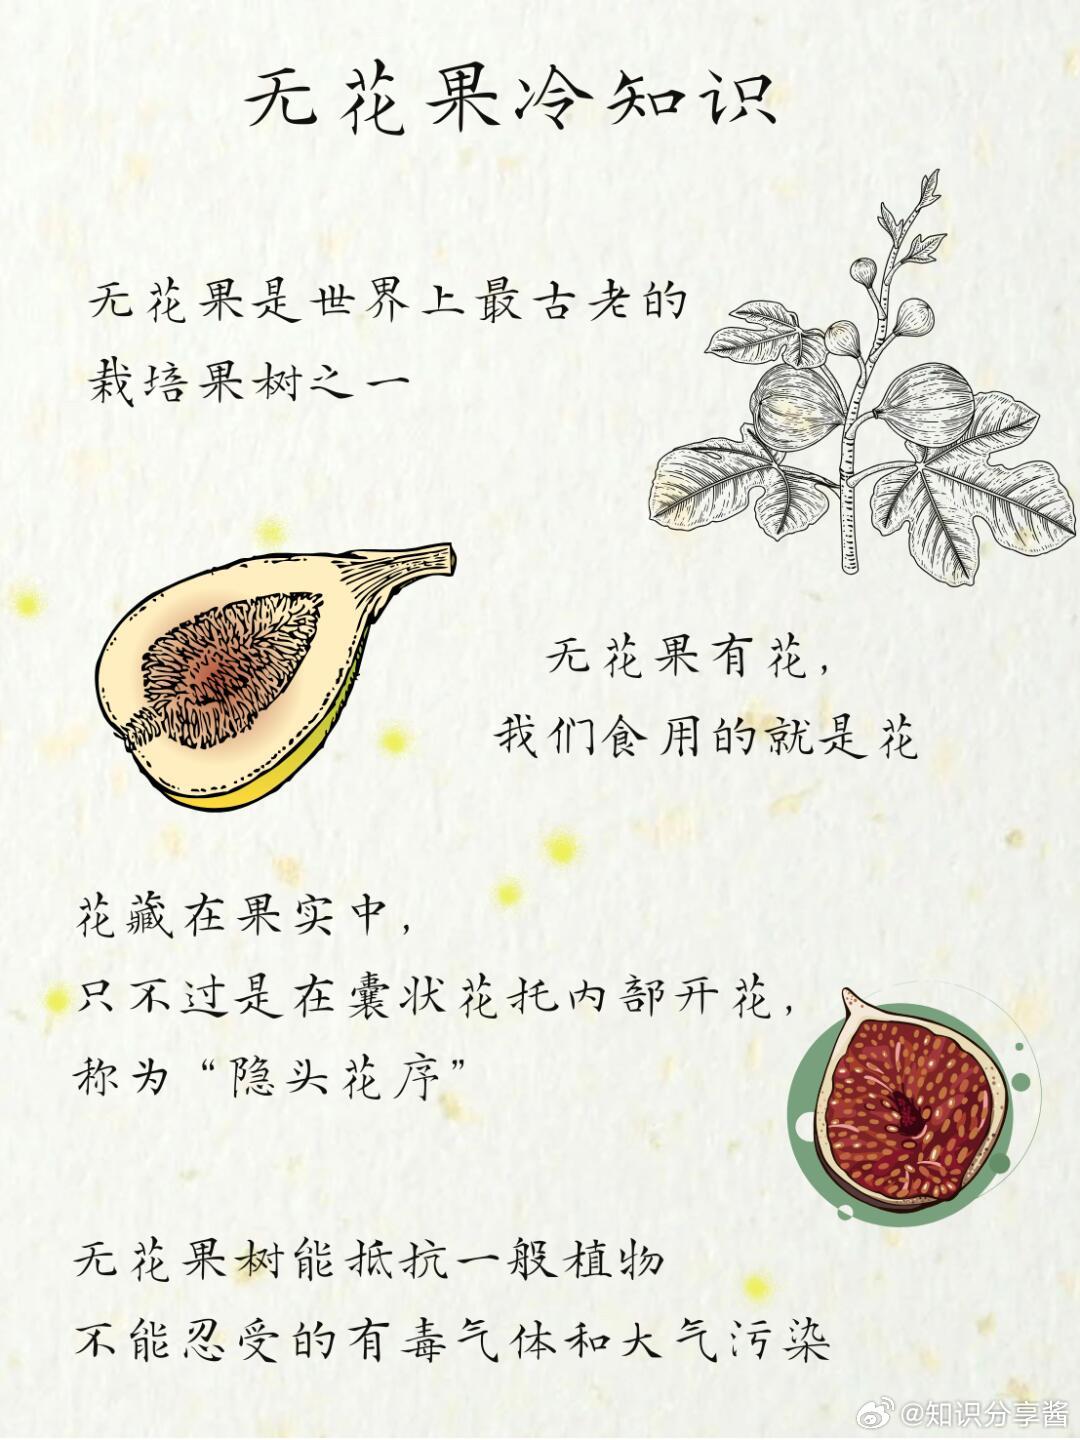 无花果冷知识
无花果是世界上最古老的
栽培果树之一
无花果有花，
我们食用的就是花
花藏在果实中，
只不过是在囊状花托内部开花，
称为“隐头花序”
无花果树能抵抗一般植物
不能忍受的有毒气体和大气污染
@知识分享酱